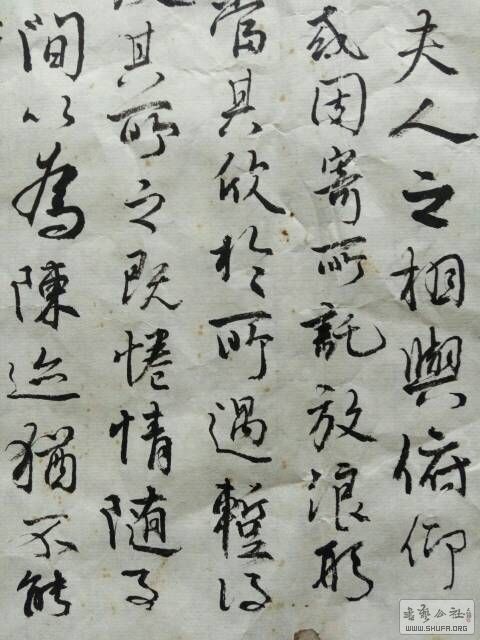 夫人之相與俯仰
或因寄所託放浪形
當其欣於所遇蹔得
其所之既惓情随事
間以為陳迹猶不能
書藝公社
WWW.SHUFA.ORG